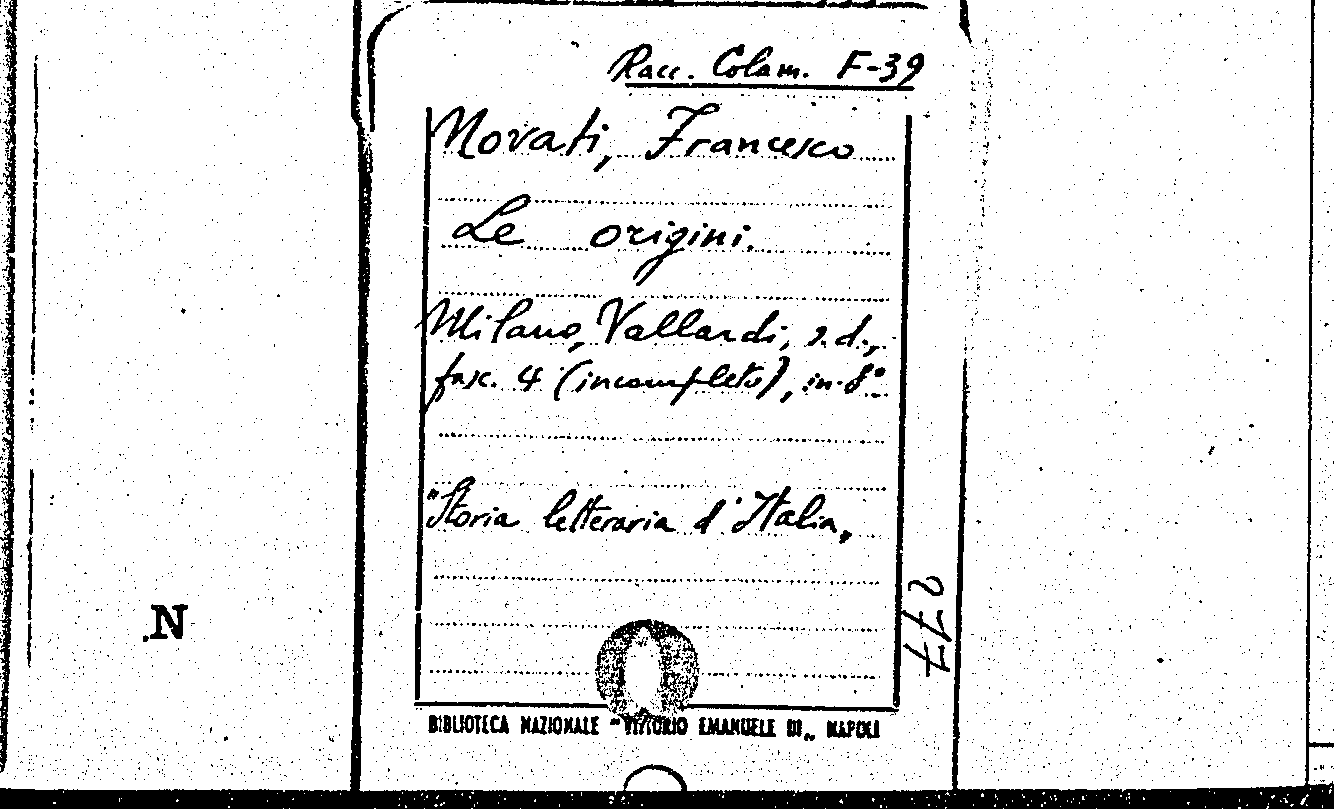 Racc. Colam. F-39
Novati, Francesco
Le origini.
Milano, Vallardi, s.d.,
fasc. 4 (incompleto), in-8°
"Storia letteraria d'Italia„
277
.N
BIBLIOTECA NAZIONALE "VITTORIO EMANUELE III„ NAPOLI